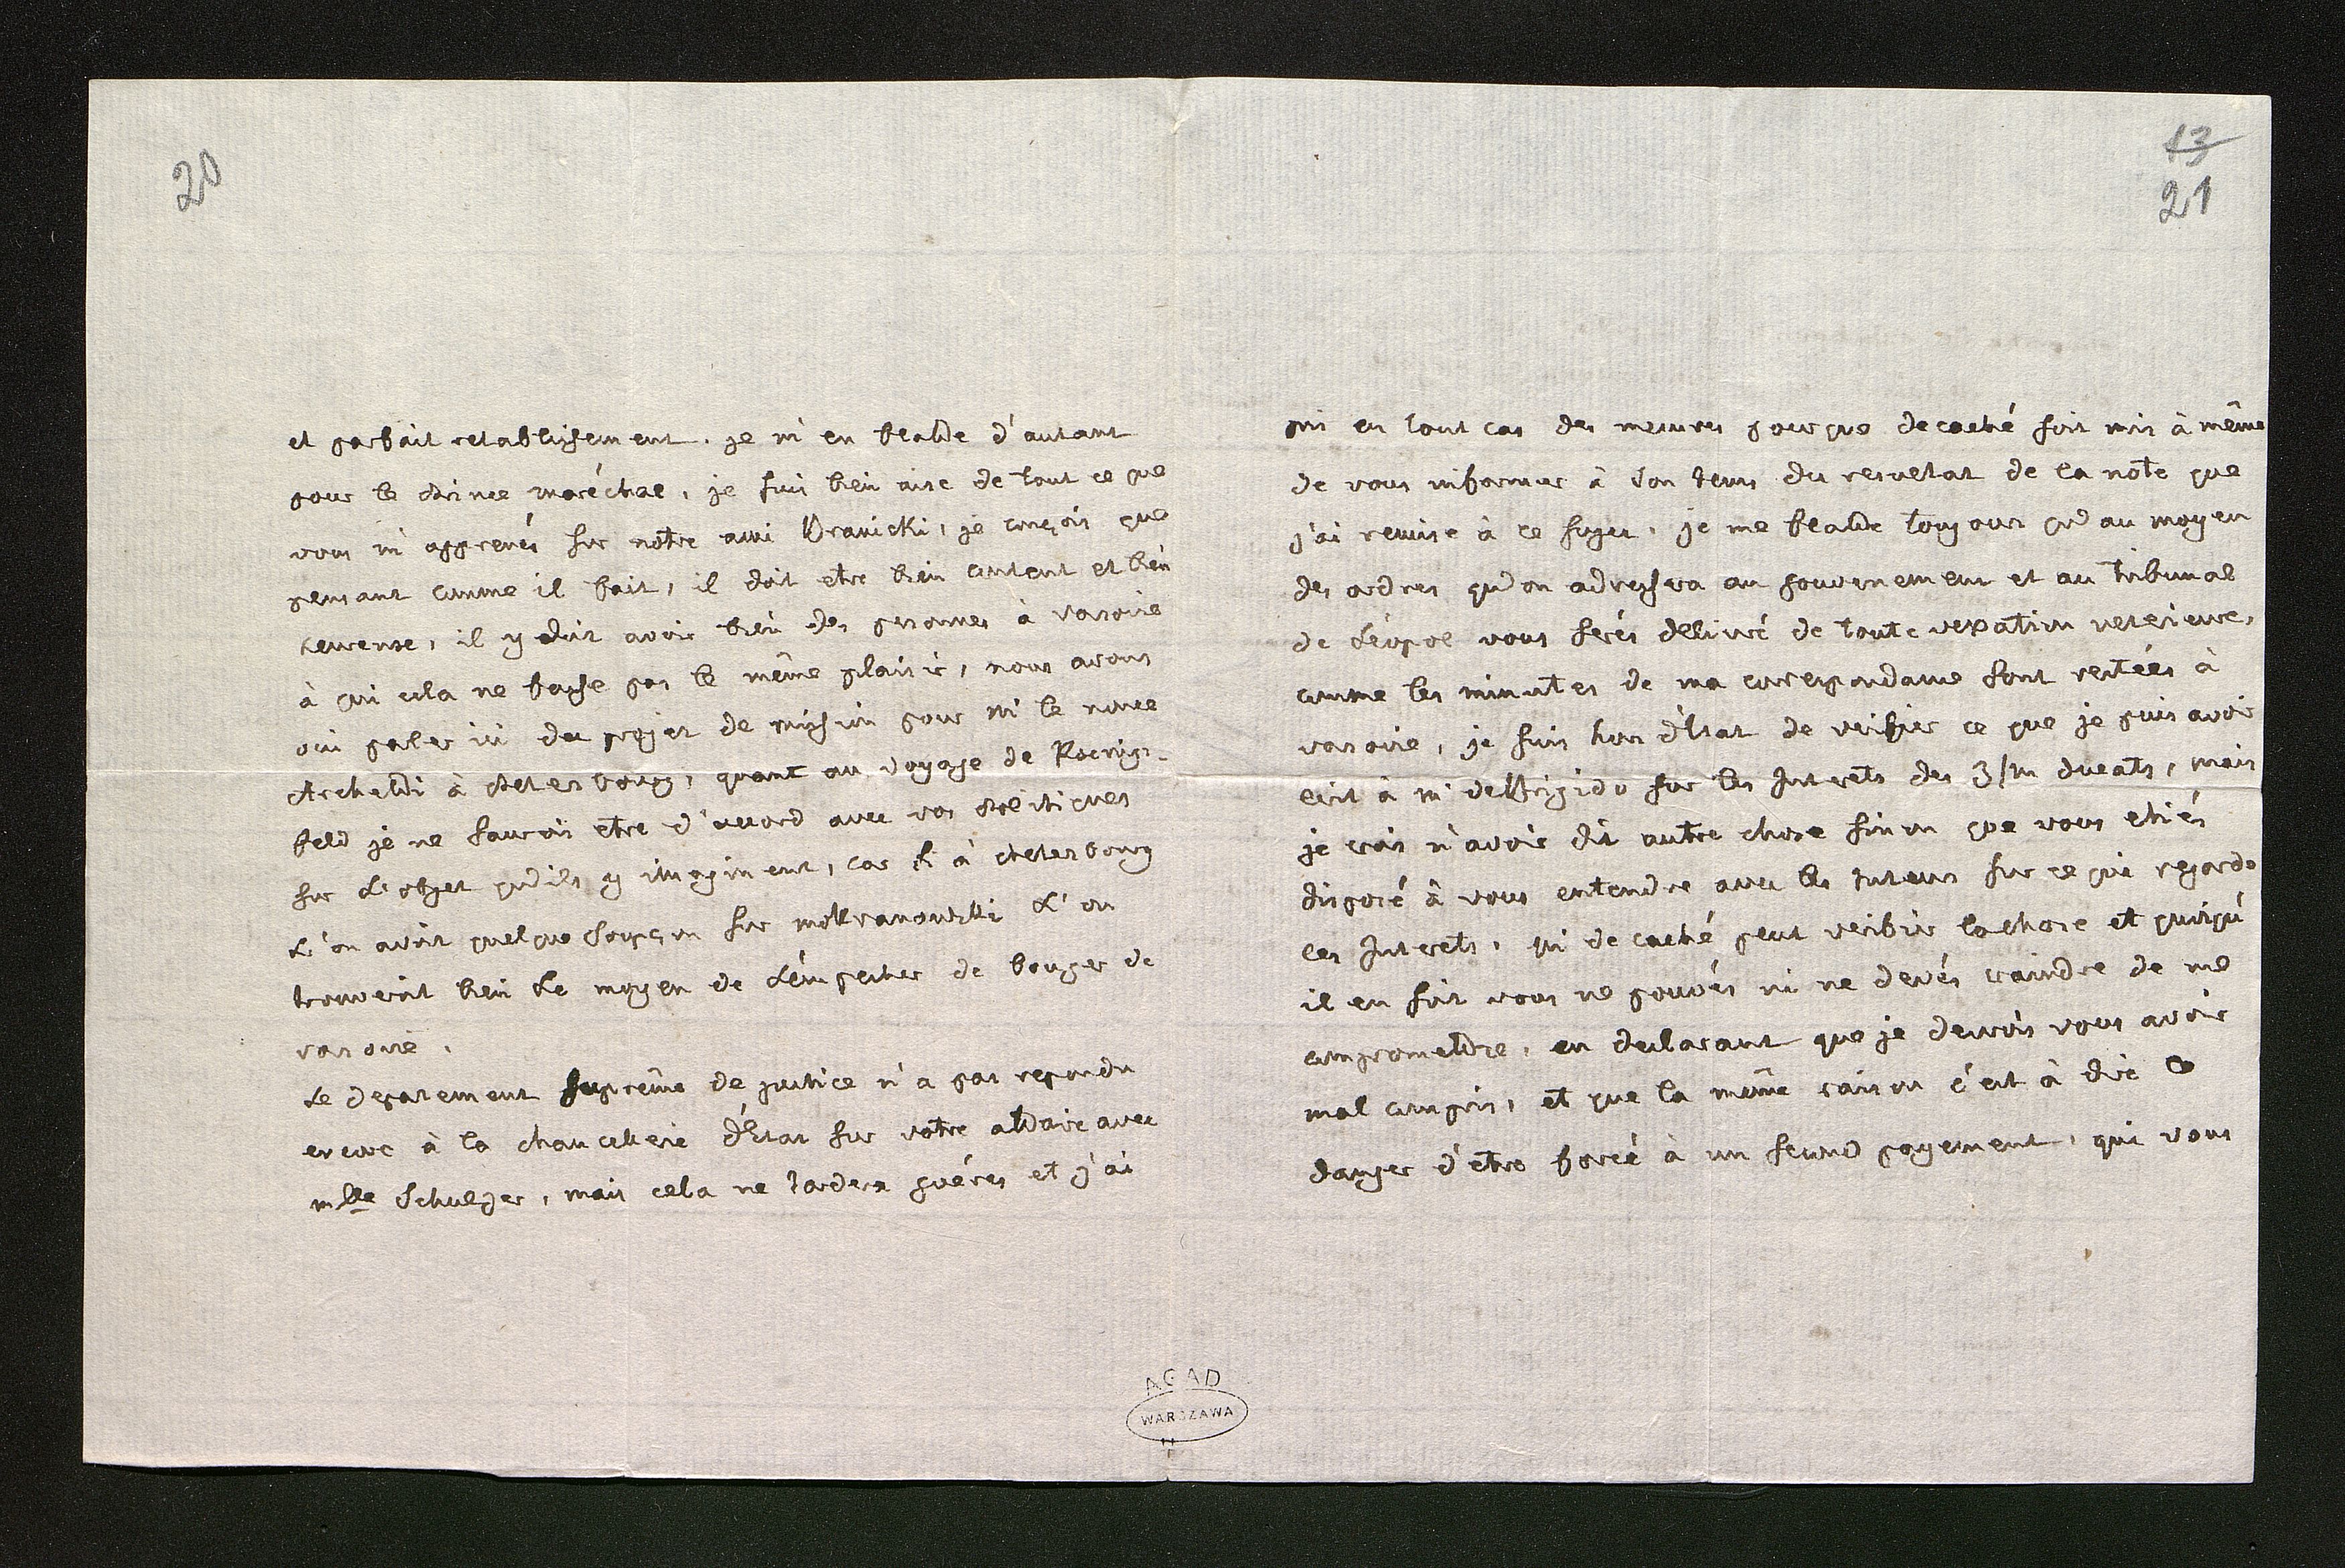 20
et parfait retablissement. je m'en flatte d'autant
pour le Prince maréchal, je suis bien aise de tout ce que
vous m'apprenés sur notre ami Branicki, je conçois que
pensant comme il fait, il doit etre bien content et bien
heureuse, il y doit avoir bien des personnes à varsovie
à qui cela ne fasse pas le même plaisir, nous avons
oui parler ici du projet de mission pour M le nonce
Archetti à Petersbourg, quant au voyage de Koenigs-
feld je ne saurois etre d'accord avec vos Politiques
sur L'objet qu'ils y imaginent, car si à Petersbourg
L'on avoit quelque soupçon sur mokranowski L'on
trouveroit bien Le moyen de L'empecher de bouger de
varsovie.
Le departement suprême de justice n'a pas repondu
encore à la chancellerie d'État sur votre affaire avec
mlle Schulzer, mais cela ne tardera guéres et j'ai
13
21
pris en tout cas des mesures pourque decaché soit mis à même
de vous informer à son tems du resultat de la note que
j'ai remise à ce sujet. je me flatte toujours qu'au moyen
des ordres qu'on adressera au gouvernement et au tribunal
de Léopol vous serés délivré de toute vexation ulterieure,
comme les minutes de ma correspondance sont restées à
varsovie, je suis hors d'État de verifier ce que je puis avoir
écrit à M de Brigido sur les Interets des 3/m ducats, mais
je crois n'avoir dit autre chose sinon que vous etiés
disposé à vous entendre avec les tuteurs sur ce qui regarde
les Interets. M de caché peut verifier la chose et quoiqu'
il en soit vous ne pouvés ni ne devés craindre de me
compromettre, en declarant que je devrois vous avoir
mal compris, et que la même raison c'est à dire le
danger d'etre forcé à un second payement, qui vous
AGAD
WARSZAWA